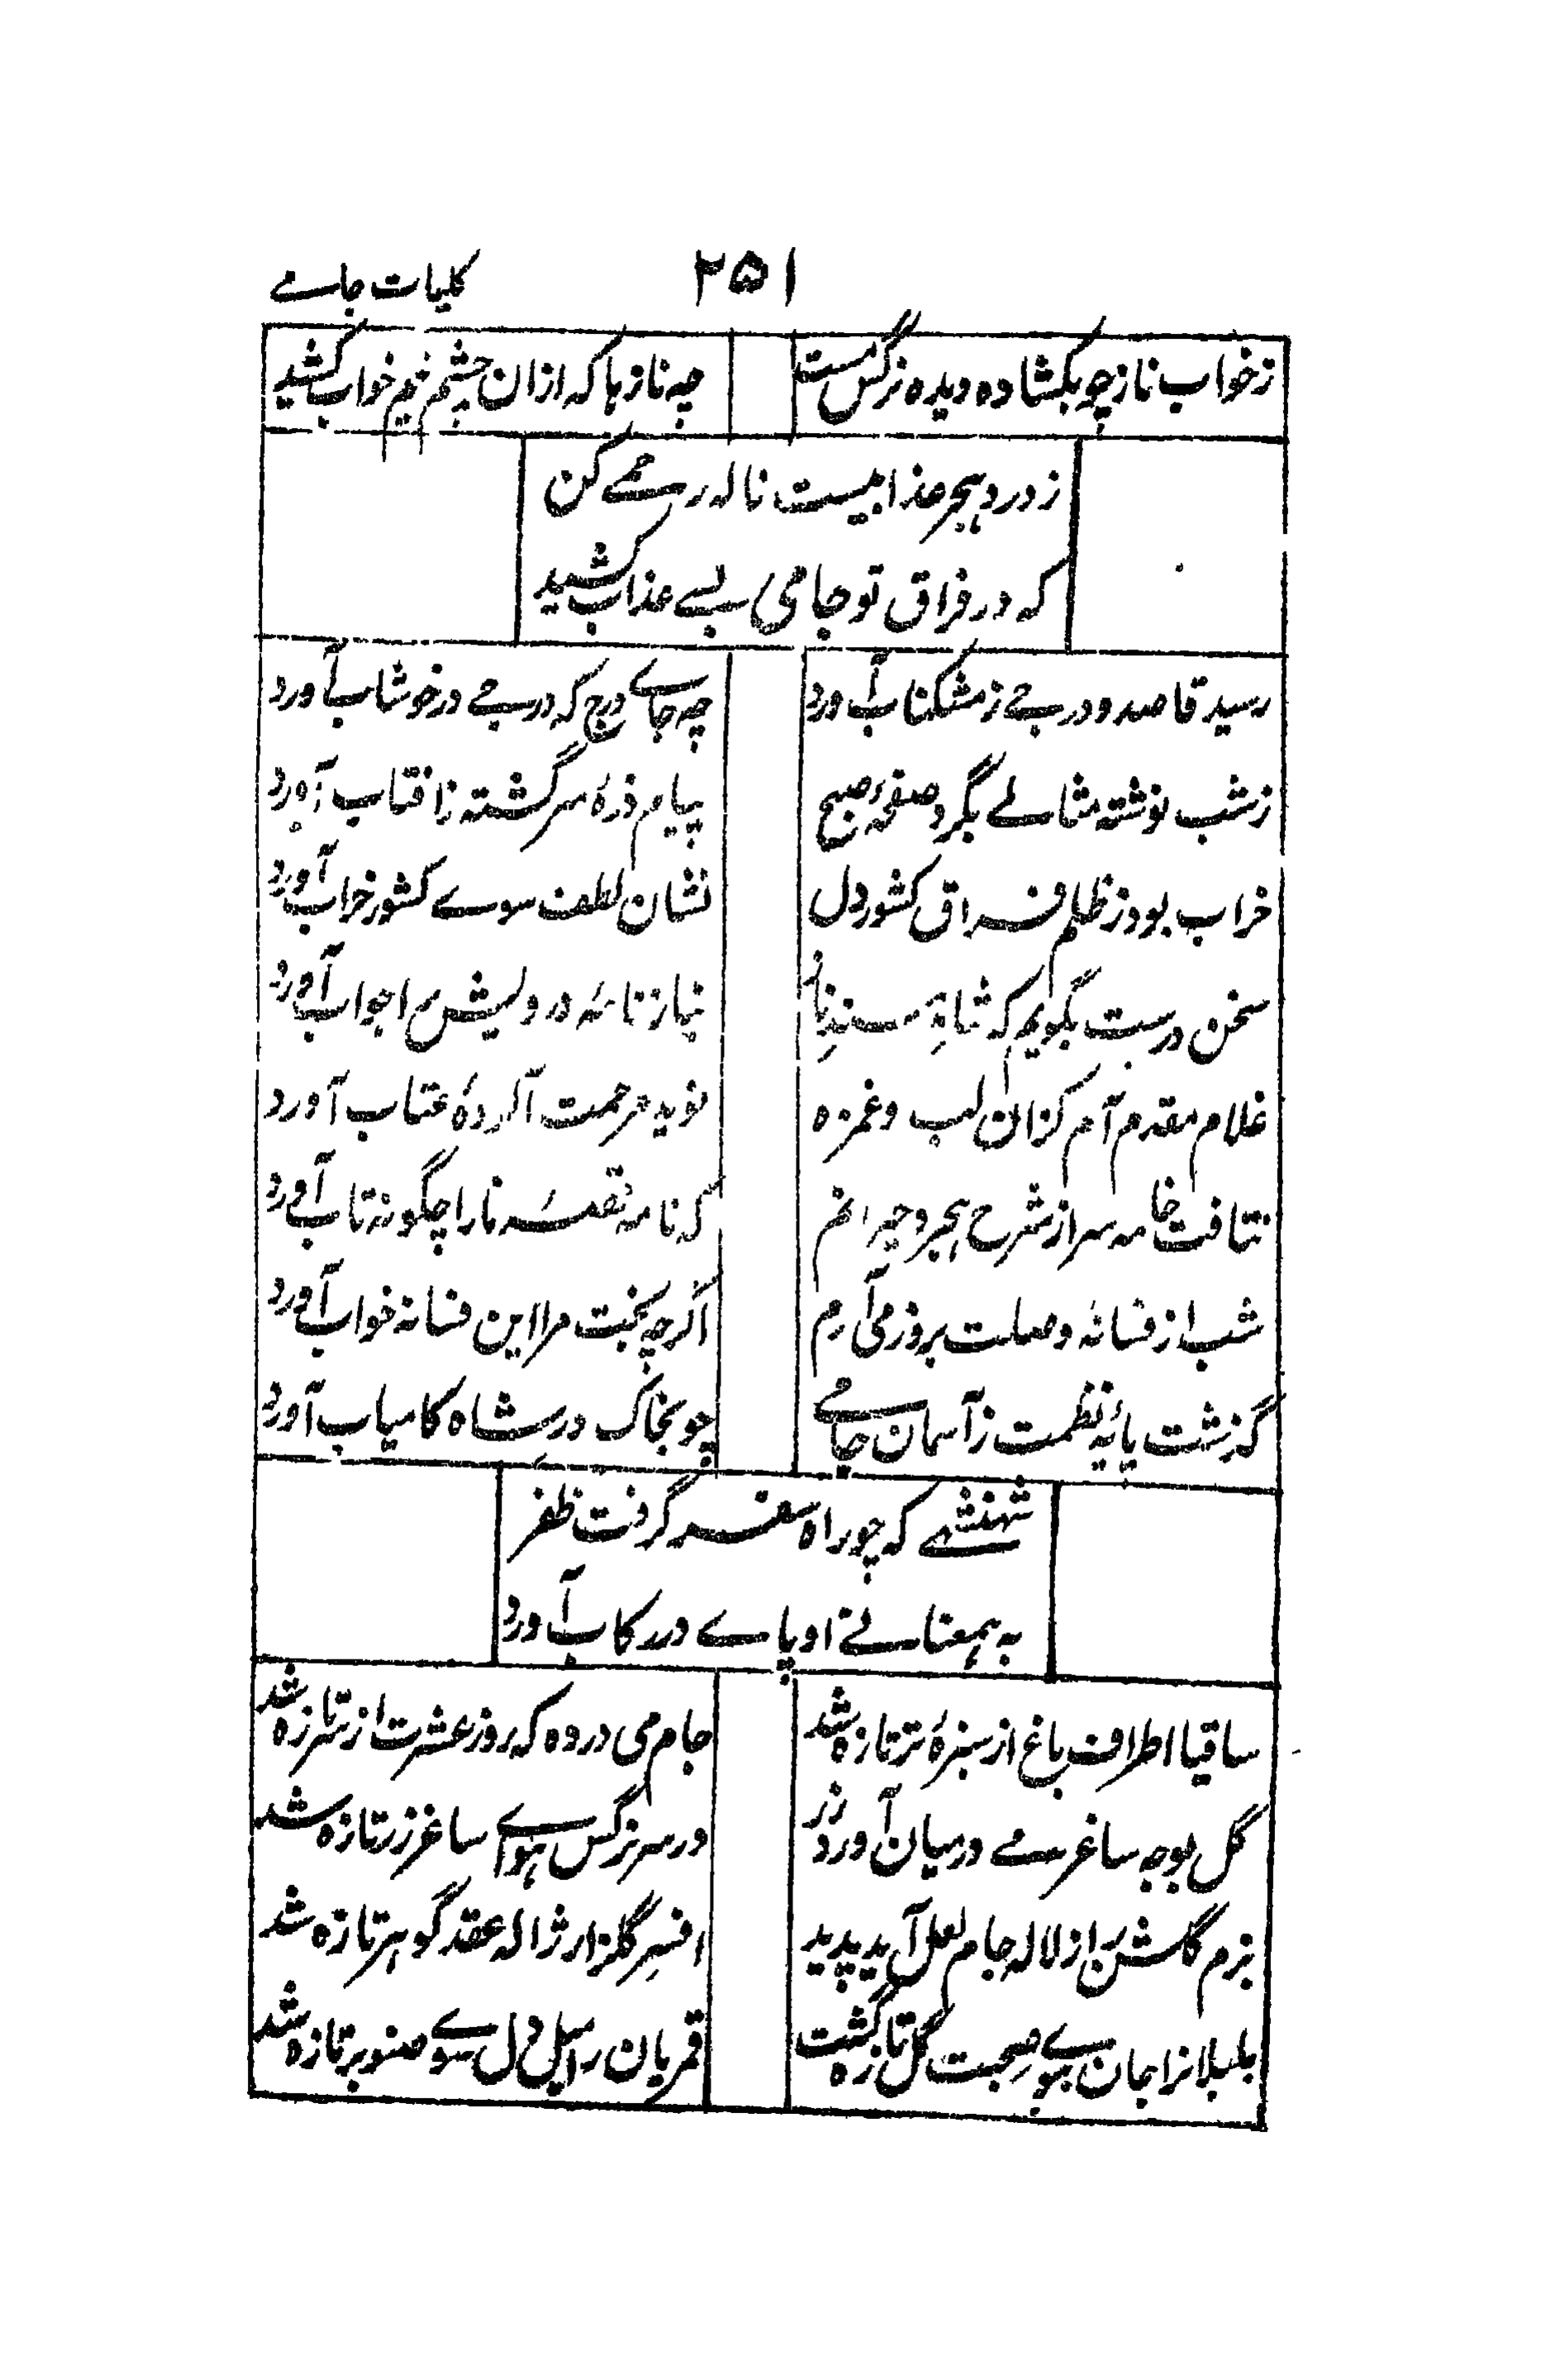 ۲۵۱ کلیات جامے
زخواب ناز چو بکشاده دیده نرگس مست چه ناز ها که ازان چشم نیم خواب کشید
ز درد هجر عذابیست ناله رحمے کن
که در فراق تو جامی بسے عذاب کشید
رسید قاصد و درجے ز مشکناب آورد چه جاے درج که درجے در خوشاب آورد
ز شب نوشته مثالے بگرد صفحهٔ صبح پیام ذرهٔ سرگشته ز افتاب آورد
خراب بود ز ظلم فراق کشور دل نشان لطف سوے کشور خراب آورد
سخن درست بگویم که شاه مسند ناز نیاز نامهٔ درویش را جواب آورد
غلام مقدم آم کزان لب و غمزه نوید مرحمت آلردهٔ عتاب آورد
نتافت خامه سر از شرح هجر و حیرانم که نامه قصهٔ ما را چگونه تاب آورد
شب از فسانهٔ وصلت بروز می آرم اگرچه بخت مرا این فسانه خواب آورد
گذشت پایهٔ نظمت ز آسمان جامے چو بخاک در شاه کامیاب آورد
شهنشهے که چو راه سفر گرفت ظفر
به همعنانے او پاے در رکاب آورد
ساقیا اطراف باغ از سبزهٔ تر تازه شد جام می در ده که روز عشرت از سر تازه شد
گل بوجه ساغر مے درمیان آورد زر در سر نرگس هواے ساغر زر تازه شد
بزم گلشن را ز لاله جام لعل آمد پدید افسر گلزار ژاله عقد گوهر تازه شد
بلبلانرا جان بوے صحبت گل تازه گشت قمریان را میل دل سوے صنوبر تازه شد